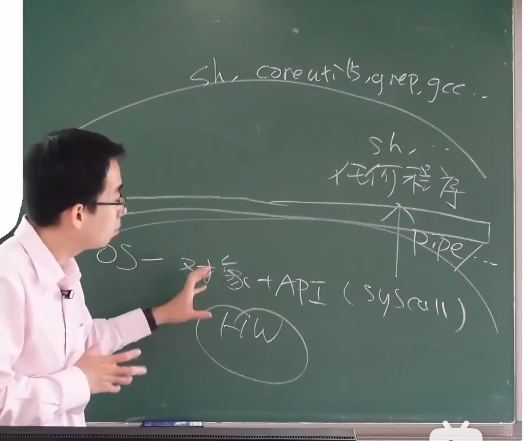 sh, coreutils, grep, gcc...
sh, ...
任何程序
Pipe, ...
OS — 对象 + API (syscall)
HW